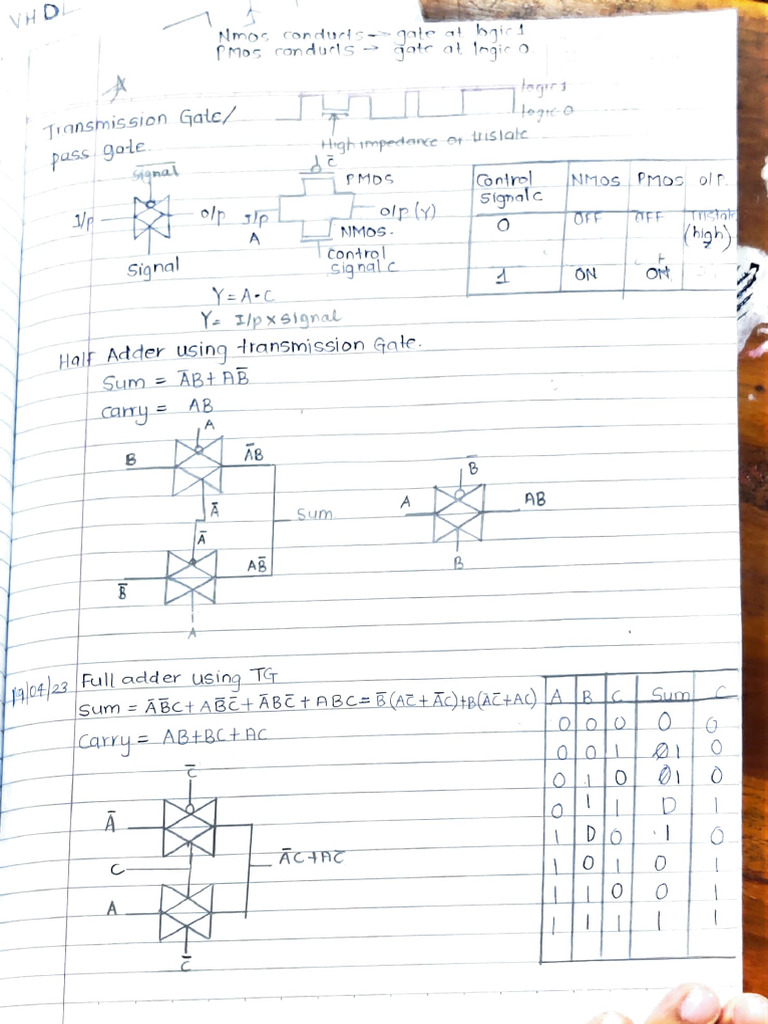 VHDL
Nmos conducts → gate at logic 1
PMos conducts → gate at logic 0
Transmission Gate/
pass gate
logic 1
logic 0
High impedance or tristate
Signal
I/p
o/p
Signal
C̅
PMOS
I/p
A
o/p (Y)
NMOS.
control
signal C
Control Signal C NMOS PMOS o/p
0 OFF OFF Tristate (high)
1 ON ON
Y = A·C
Y = I/p x signal
Half Adder using transmission Gate.
Sum = A̅B + AB̅
Carry = AB
A
B
A̅B
A̅
Sum
A̅
AB̅
B̅
A
B̅
A
AB
B
19/04/23
Full adder using TG
Sum = A̅B̅C + AB̅C̅ + A̅BC̅ + ABC = B̅(AC̅ + A̅C) + B(A̅C̅ + AC)
Carry = AB + BC + AC
C̅
A̅
C
A̅C + AC̅
A
C̅
A B C Sum C
0 0 0 0 0
0 0 1 1 0
0 1 0 1 0
0 1 1 0 1
1 0 0 1 0
1 0 1 0 1
1 1 0 0 1
1 1 1 1 1